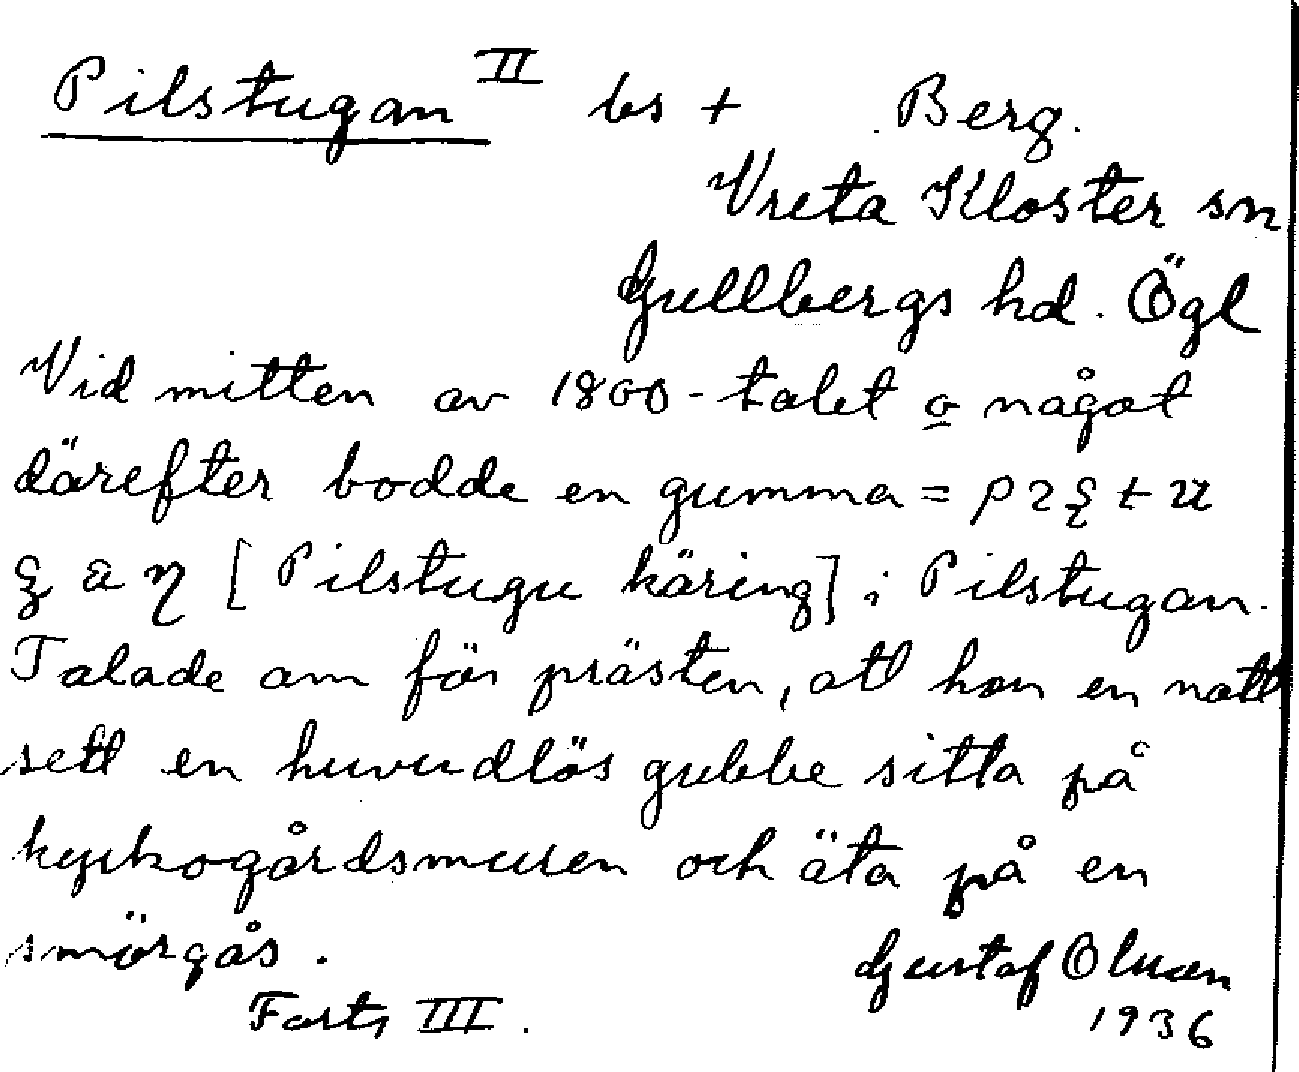 Pilstugan II bs + Berg.
Vreta Kloster sn
Gullbergs hd. Ögl
Vid mitten av 1800-talet o något
därefter bodde en gumma =
[Pilstugu käring] i Pilstugan.
Talade om för prästen, att hon en natt
sett en huvudlös gubbe sitta på
kyrkogårdsmuren och äta på en
smörgås.
Gustaf Olsson
Forts III.
1936